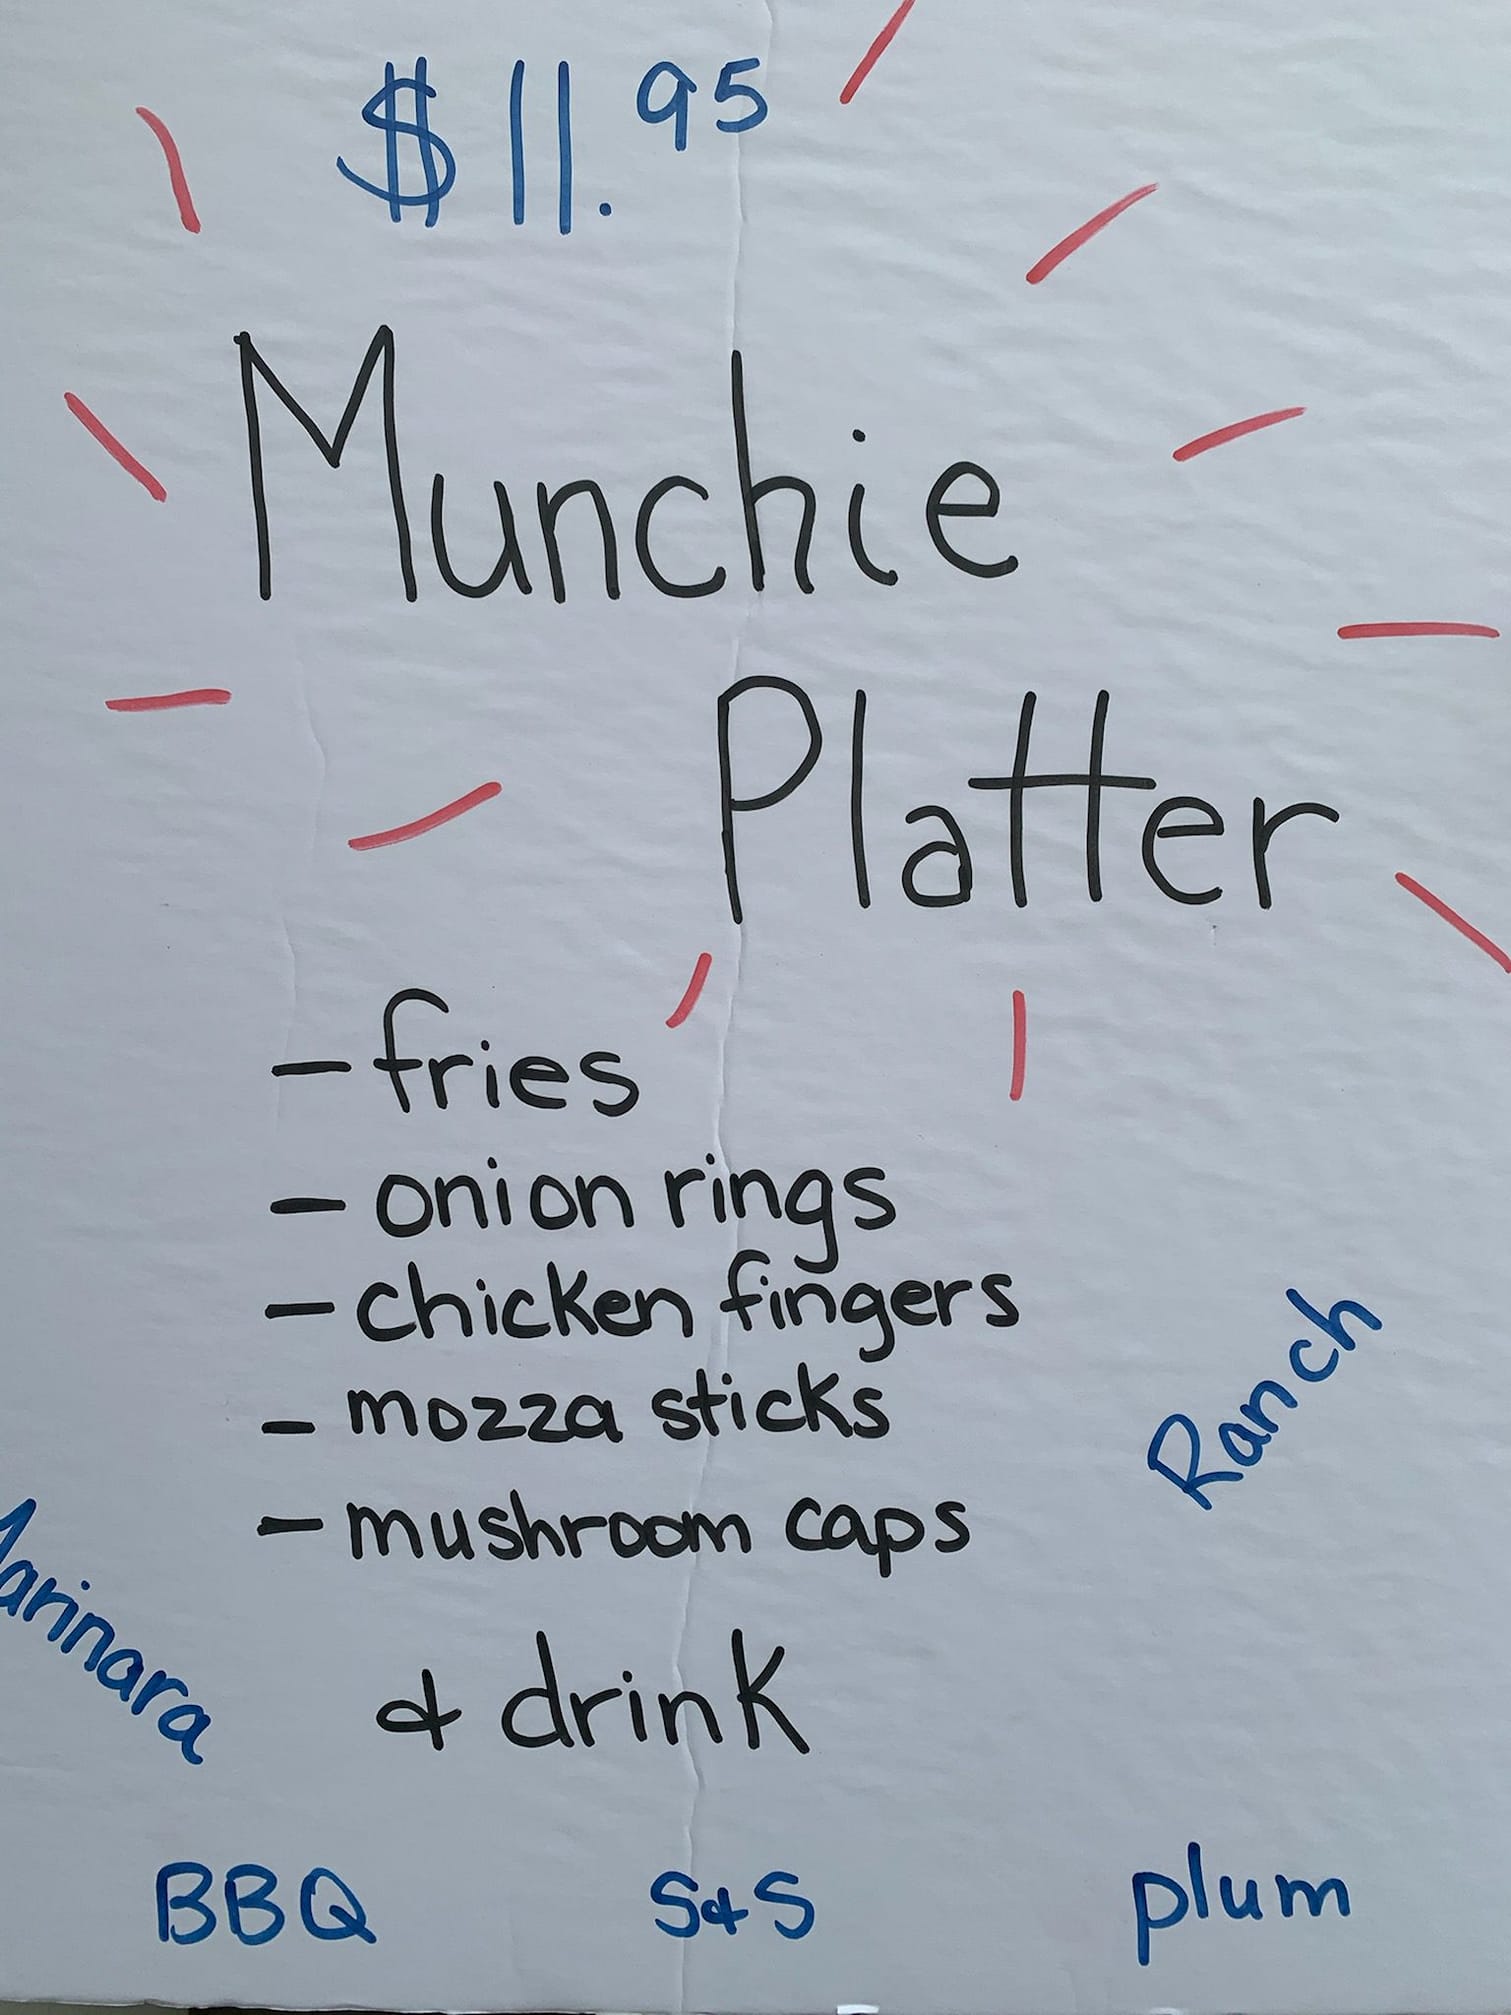 $11.95
Munchie
Platter
- fries
- onion rings
- chicken fingers
- mozza sticks
- mushroom caps
& drink
Ranch
Marinara
BBQ
S&S
plum